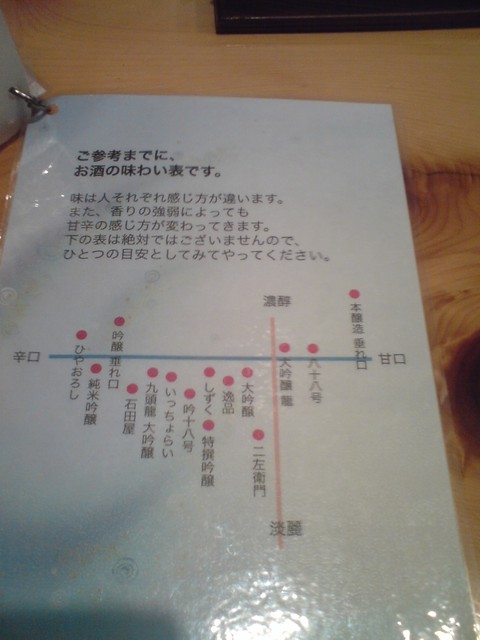 ご参考までに、
お酒の味わい表です。
味は人それぞれ感じ方が違います。
また、香りの強弱によっても
甘辛の感じ方が変わってきます。
下の表は絶対ではございませんので、
ひとつの目安としてみてやってください。
濃醇
辛口
甘口
淡麗
ひやおろし
吟醸 垂れ口
純米吟醸
石田屋
九頭龍 大吟醸
いっちょらい
吟十八号
しずく
特撰吟醸
逸品
大吟醸
二左衛門
大吟醸 龍
八十八号
本醸造 垂れ口